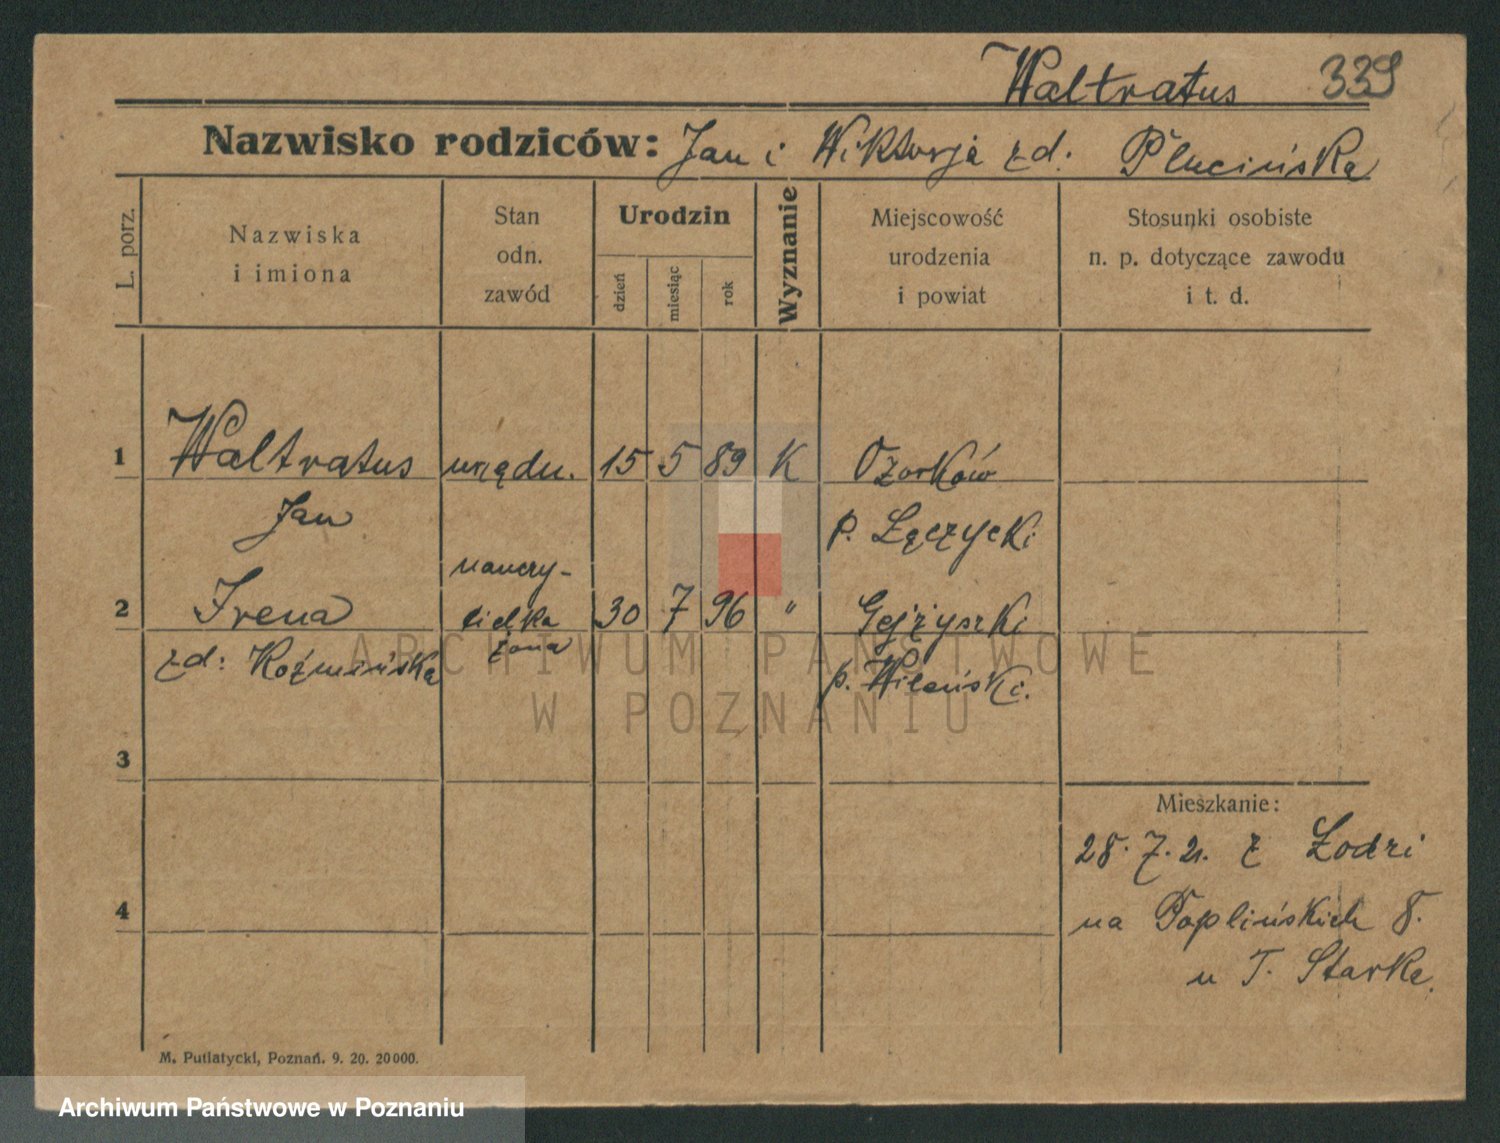 Waltratus 339
Nazwisko rodziców: Jan i Wiktorja zd. Plucińska
L. porz.
Nazwiska
i imiona
Stan
odn.
zawód
Urodzin
dzień
miesiąc
rok
Wyznanie
Miejscowość
urodzenia
i powiat
Stosunki osobiste
n. p. dotyczące zawodu
i t. d.
1 Waltratus urzędn. 15 5 89 K Ozorków
Jan p. Łęczycki
nauczy-
2 Irena cielka 30 7 96 " Gejżyszki
żona
zd: Koźmińska p. Wileński.
3
4
Mieszkanie:
28. 7. 21. z Łodzi
na Poplińskich 8.
u T. Starke.
M. Putiatycki, Poznań. 9. 20. 20000.
ARCHIWUM PAŃSTWOWE
W POZNANIU
Archiwum Państwowe w Poznaniu